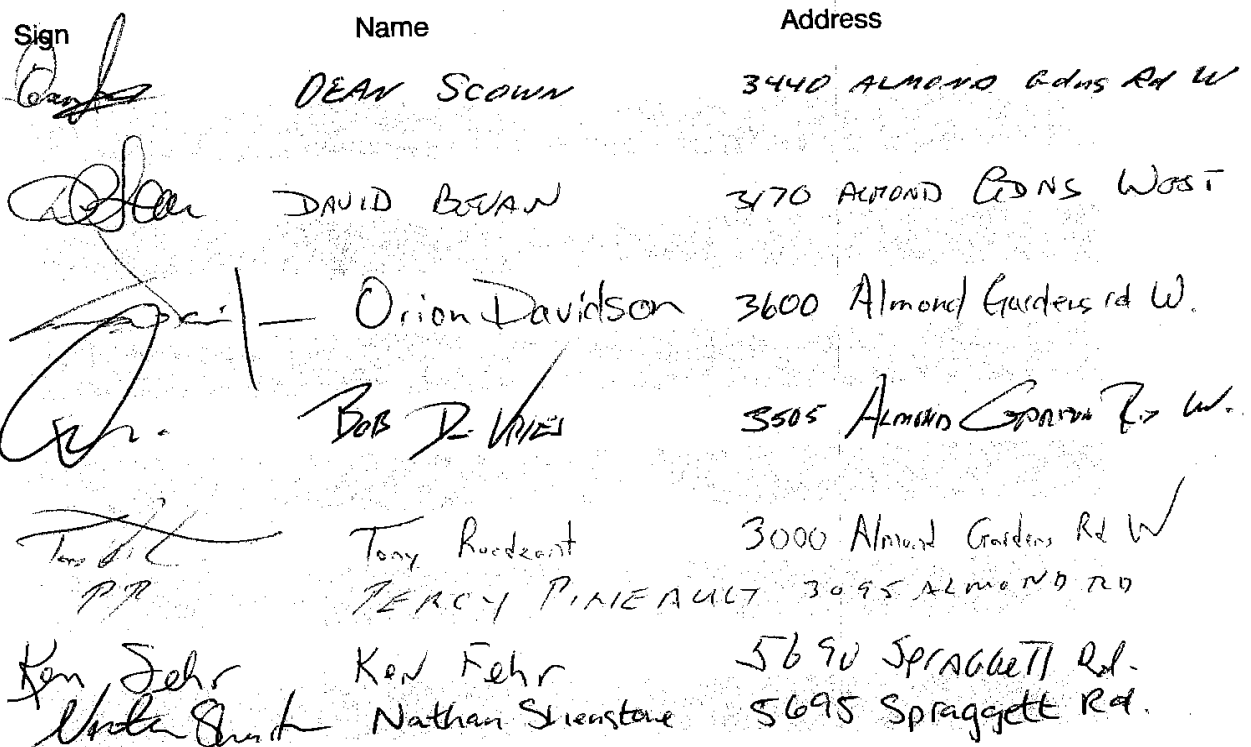 Sign Name Address
DEAN SCOWN 3440 ALMOND Gdns Rd W
DAVID BEVAN 3170 ALMOND GDNS WEST
Orion Davidson 3600 Almond Gardens rd W.
BOB De VRIES 3505 ALMOND GARDEN RD W.
Tony 3000 Almond Gardens Rd W
PP PERCY PINEAULT 3095 ALMOND RD
Ken Fehr Ken Fehr 5690 SPRAGGETT Rd.
Nathan Shenstone 5695 Spraggett Rd.